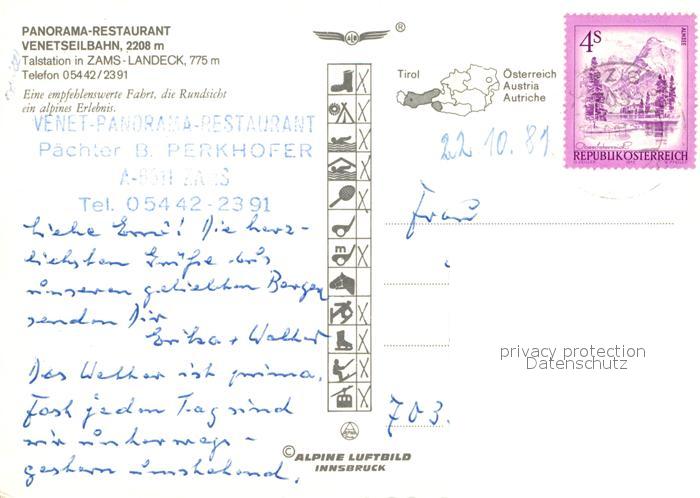 PANORAMA-RESTAURANT
VENETSEILBAHN, 2208 m
Talstation in ZAMS - LANDECK, 775 m
Telefon 0 54 42 / 23 91
Eine empfehlenswerte Fahrt, die Rundsicht
ein alpines Erlebnis.
VENET-PANORAMA-RESTAURANT
Pächter B. PERKHOFER
A-6511 ZAMS
Tel. 0 54 42 - 23 91
Liebe Erni! Die herz-
lichsten Grüße aus
unseren geliebten Bergen
senden Dir
Erika + Walter
Das Wetter ist prima.
Fast jeden Tag sind
wir unterwegs -
gestern umstehend.
®
Tirol
Österreich
Austria
Autriche
4 S
ALMSEE
Oberösterreich
REPUBLIK ÖSTERREICH
22.10.81
Frau
privacy protection
Datenschutz
703
© ALPINE LUFTBILD
INNSBRUCK